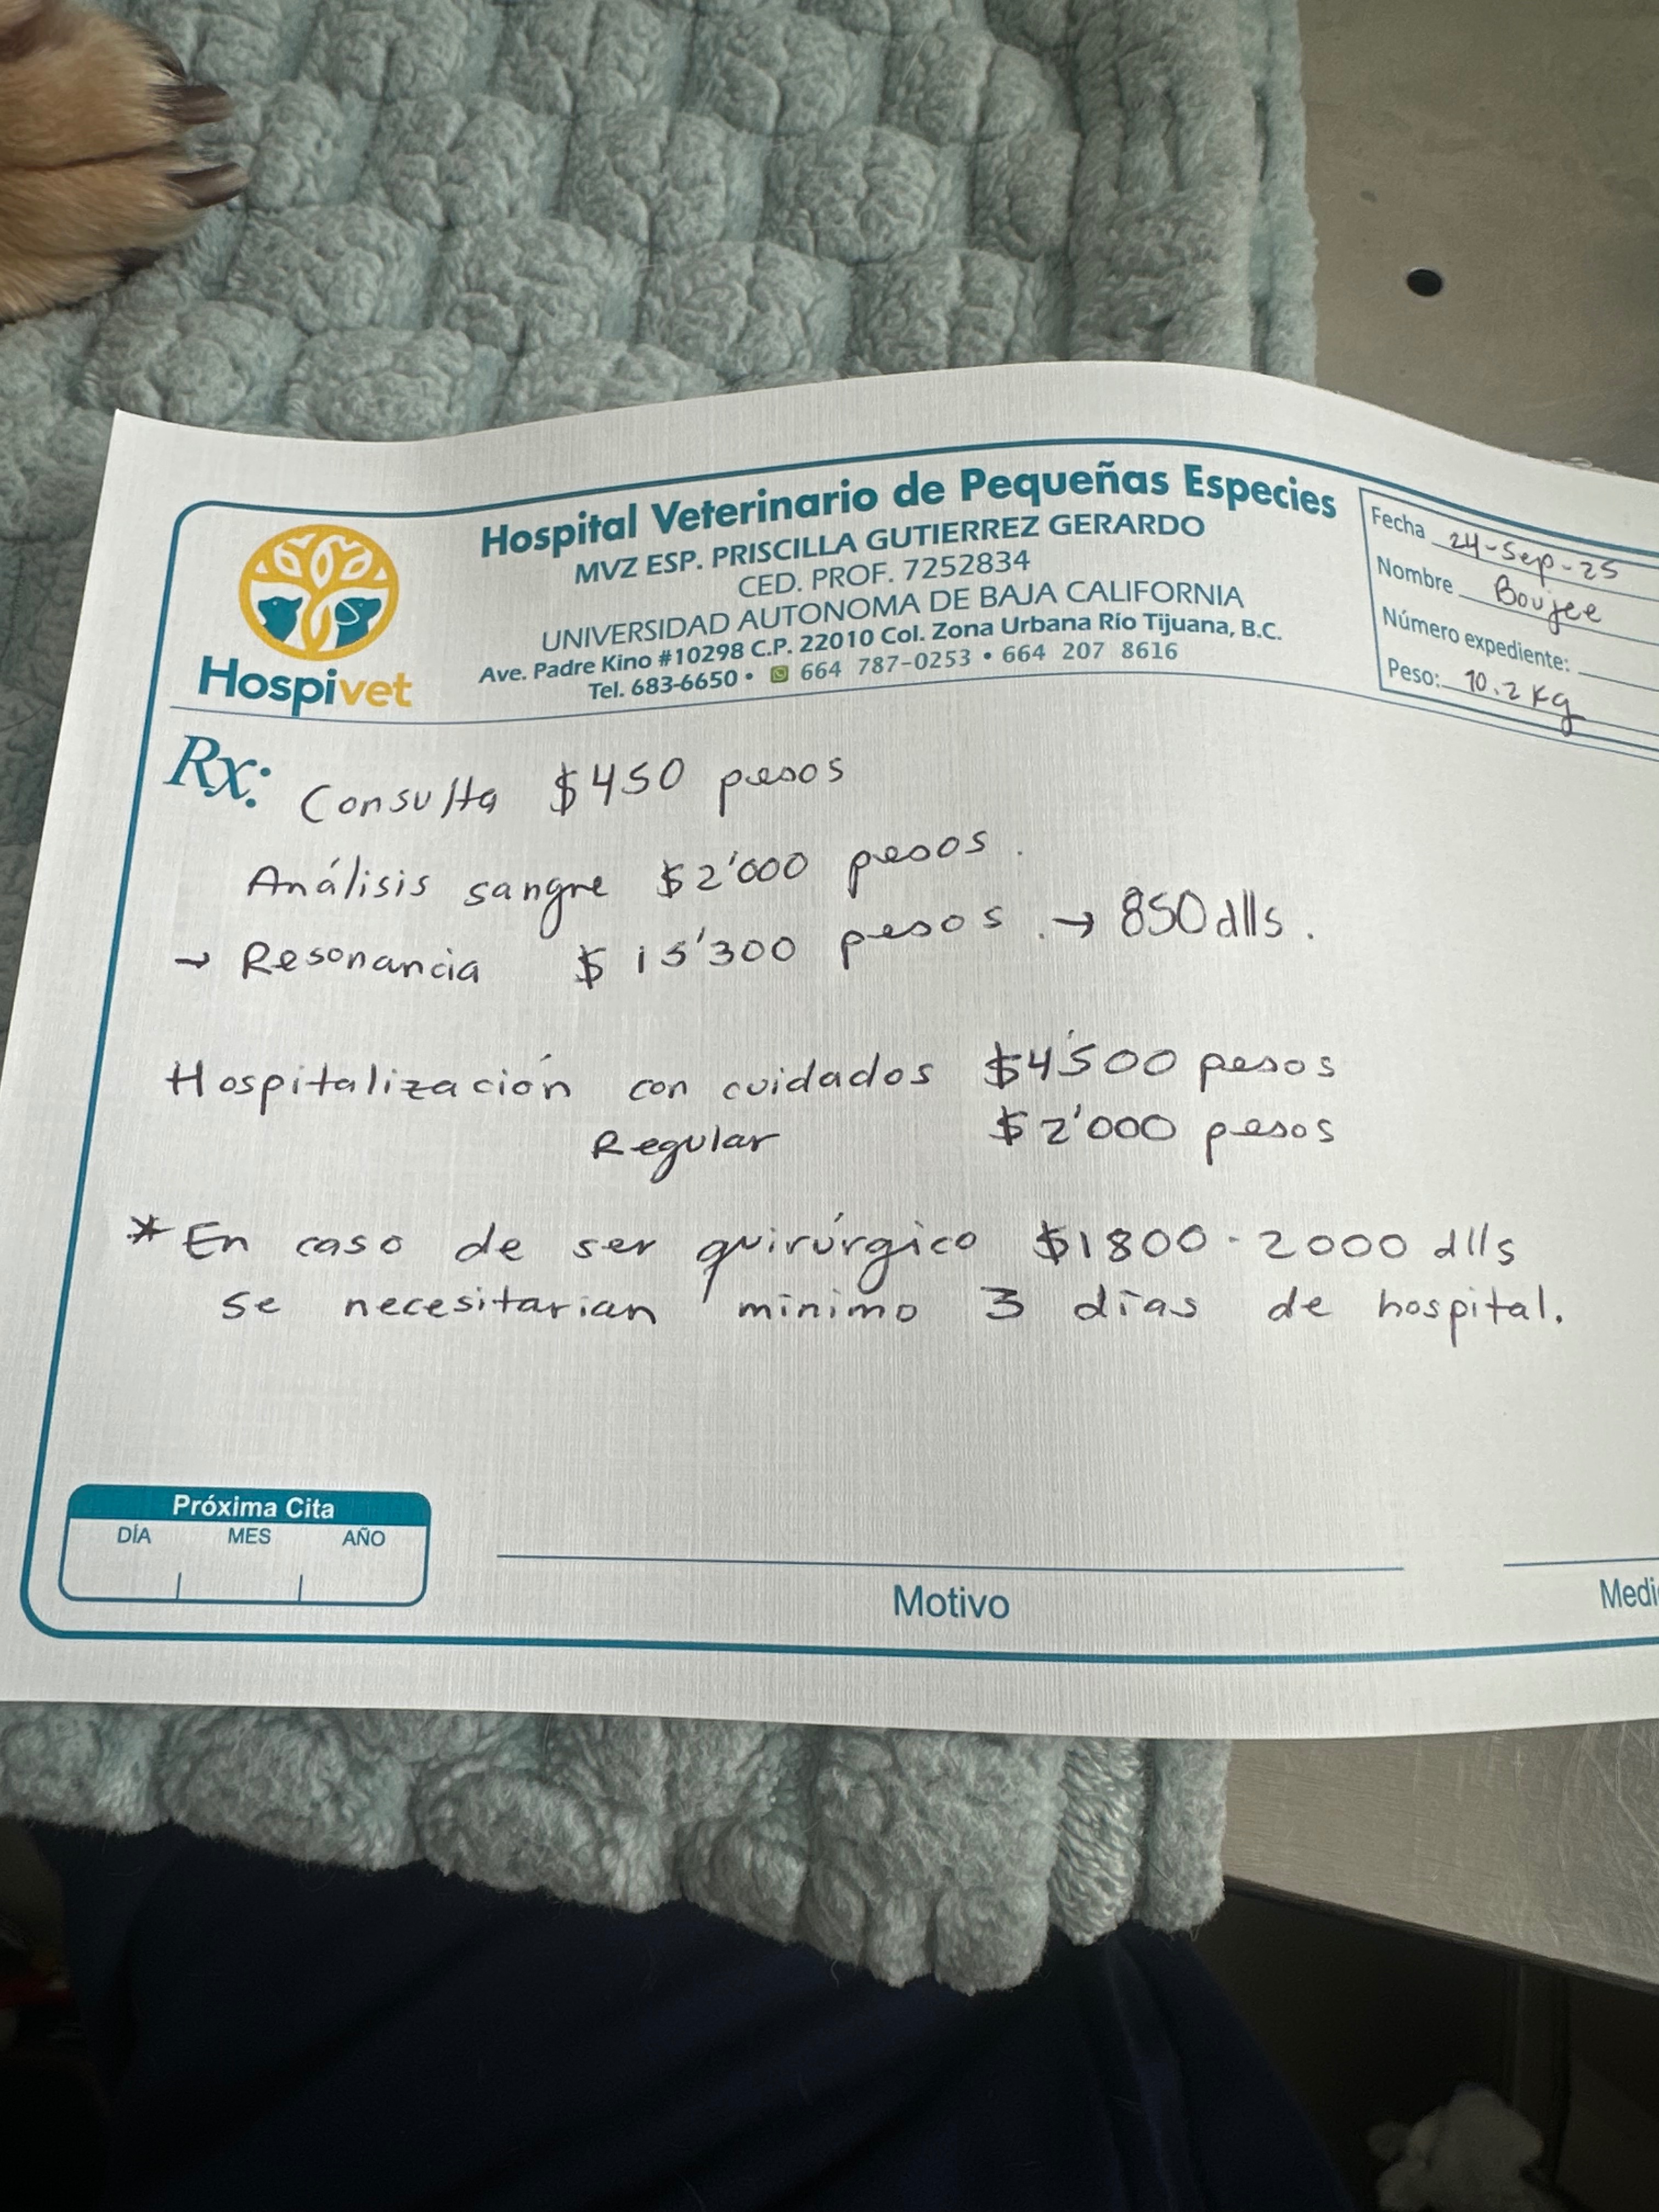 Hospital Veterinario de Pequeñas Especies
MVZ ESP. PRISCILLA GUTIERREZ GERARDO
CED. PROF. 7252834
UNIVERSIDAD AUTONOMA DE BAJA CALIFORNIA
Ave. Padre Kino #10298 C.P. 22010 Col. Zona Urbana Río Tijuana, B.C.
Tel. 683-6650 • 664 787-0253 • 664 207 8616
Hospivet
Fecha 24-Sep-25
Nombre Boujee
Número expediente:
Peso: 10.2 Kg
Rx: Consulta $450 pesos
Análisis sangre $2'000 pesos.
→ Resonancia $15'300 pesos. → 850 dlls.
Hospitalización con cuidados $4'500 pesos
Regular $2'000 pesos
* En caso de ser quirúrgico $1800-2000 dlls
se necesitarian minimo 3 días de hospital.
Próxima Cita
DÍA MES AÑO
Motivo
Medi